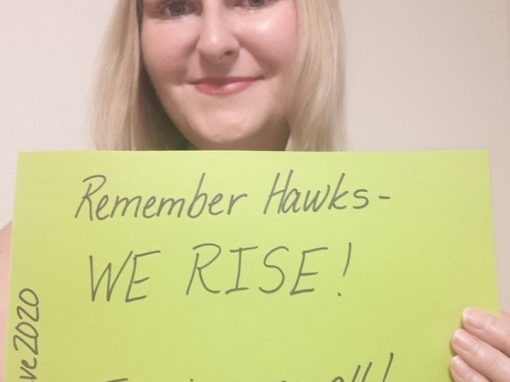 Remember Hawks -
WE RISE!
ve2020